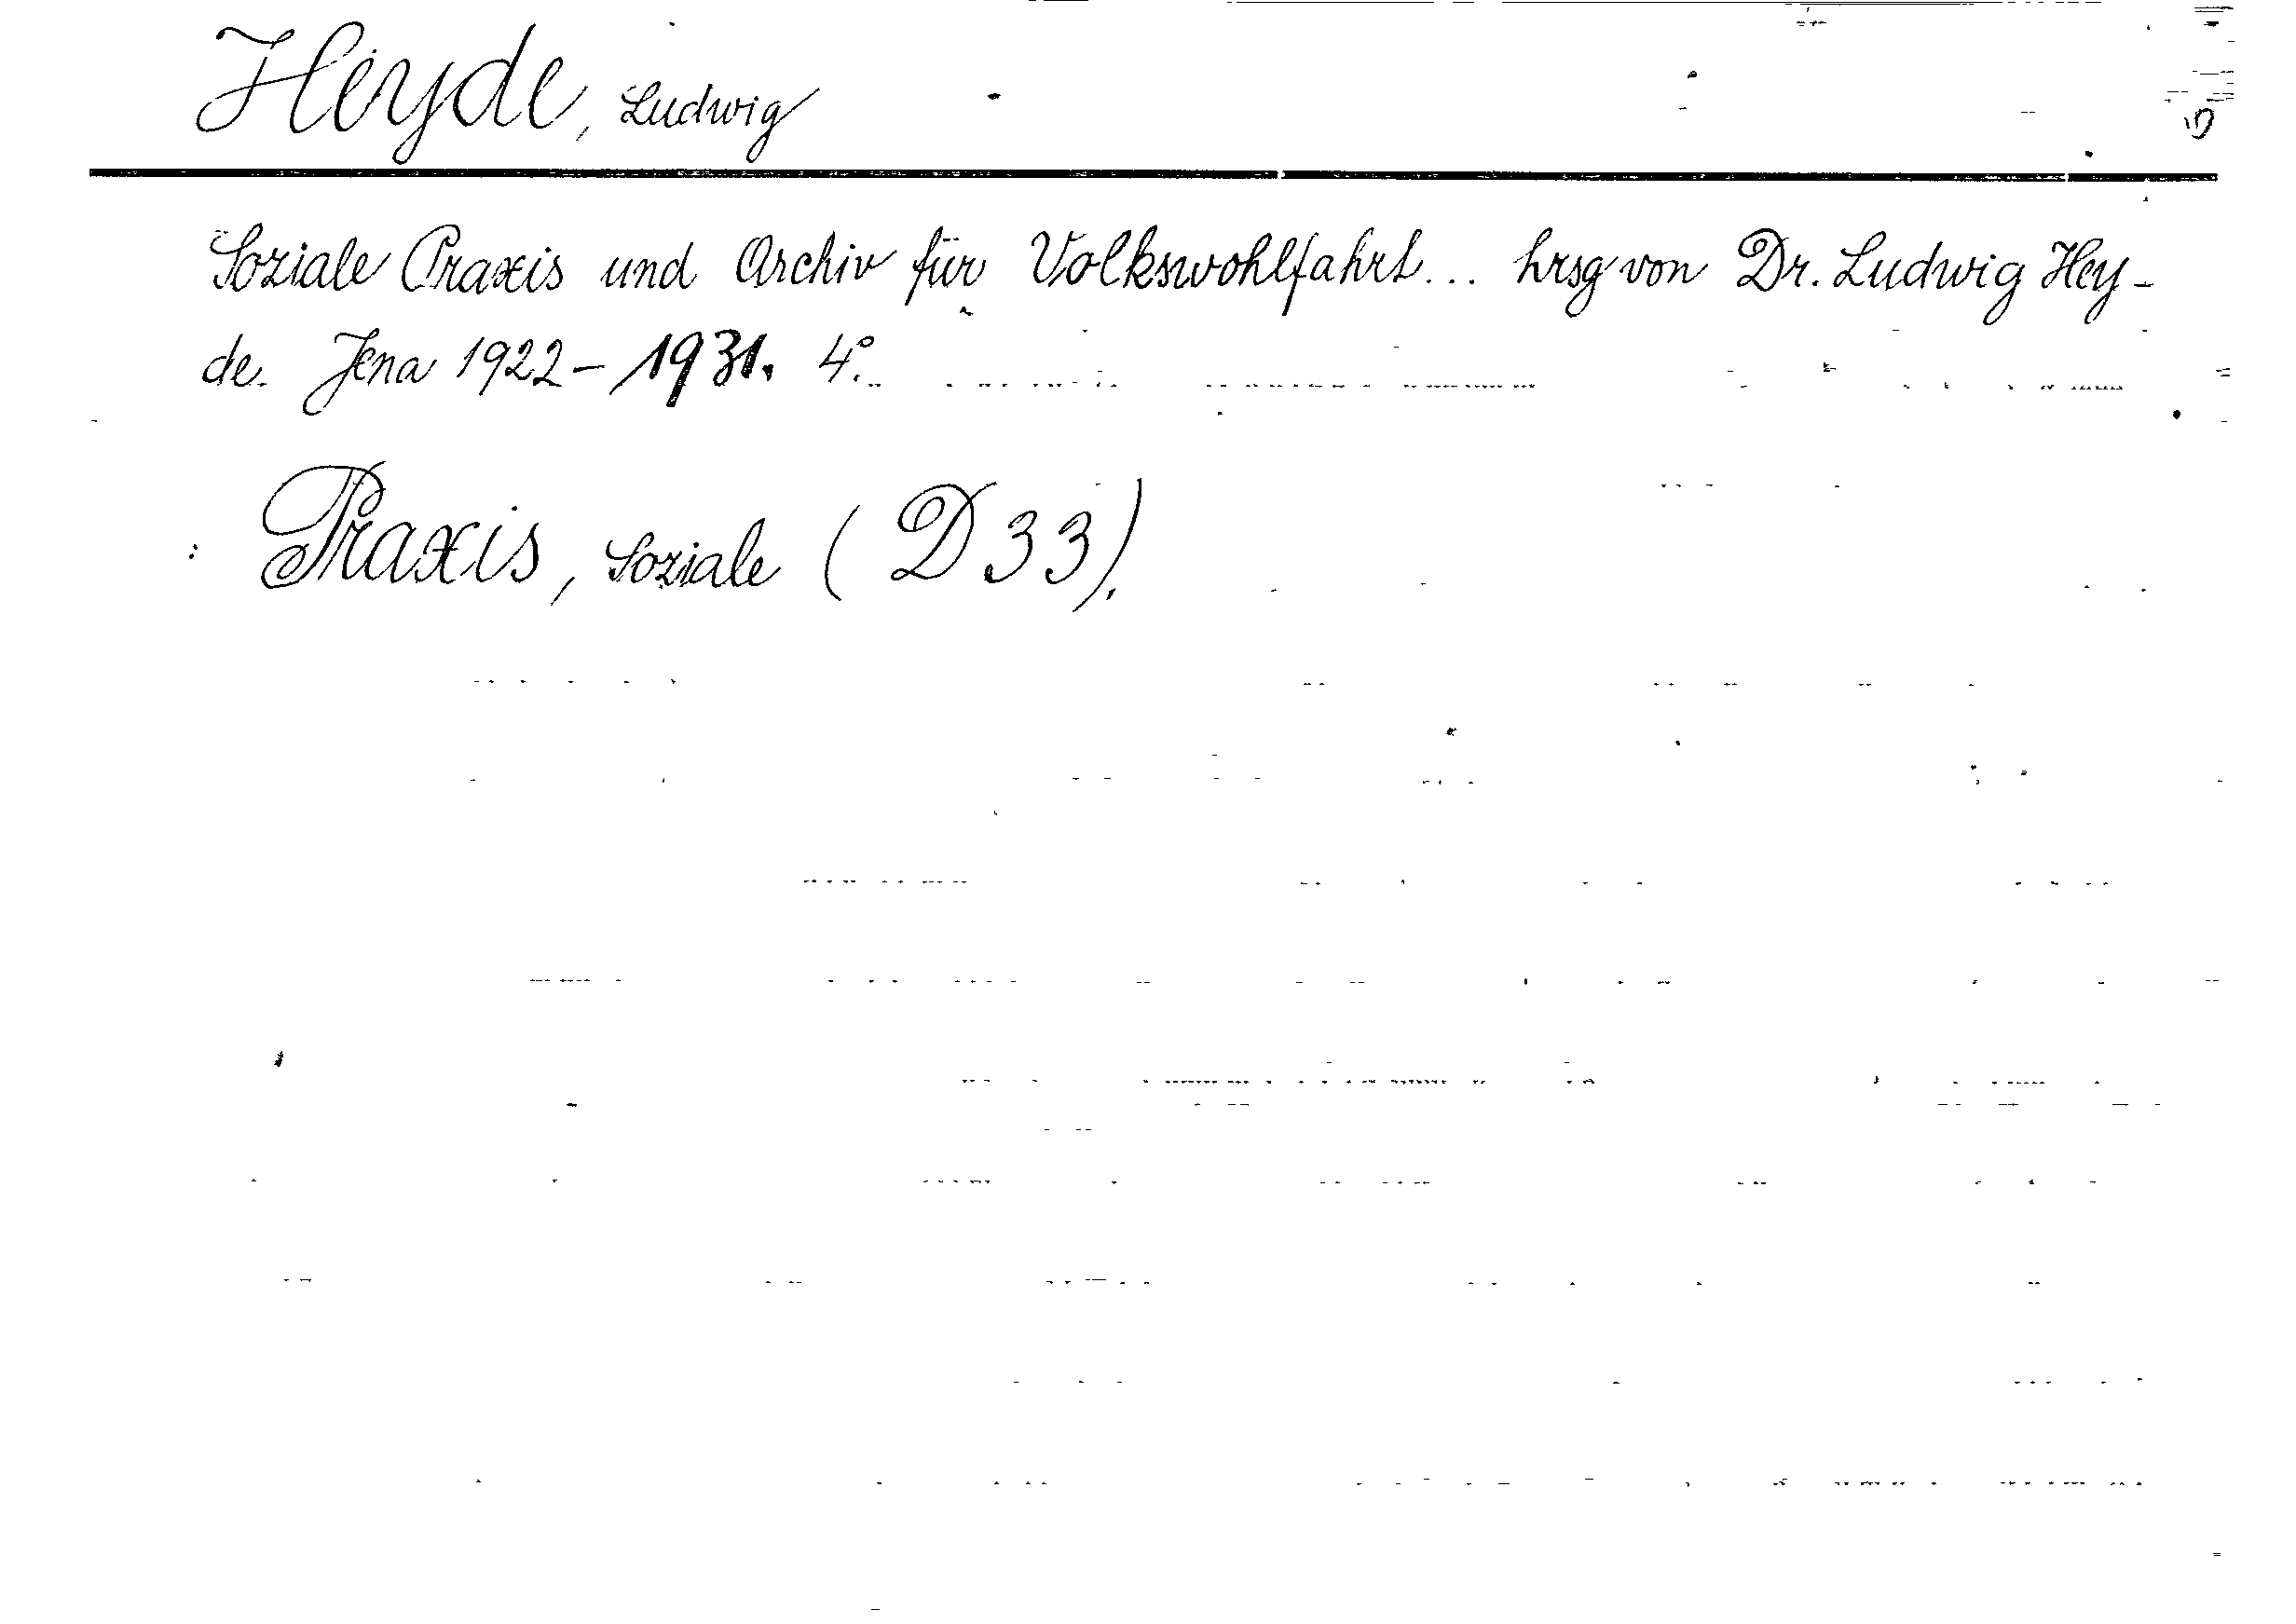 Heyde, Ludwig
Soziale Praxis und Archiv für Volkswohlfahrt... hrsg von Dr. Ludwig Hey-
de. Jena 1922-1931. 4°.
: Praxis, Soziale (D 33).